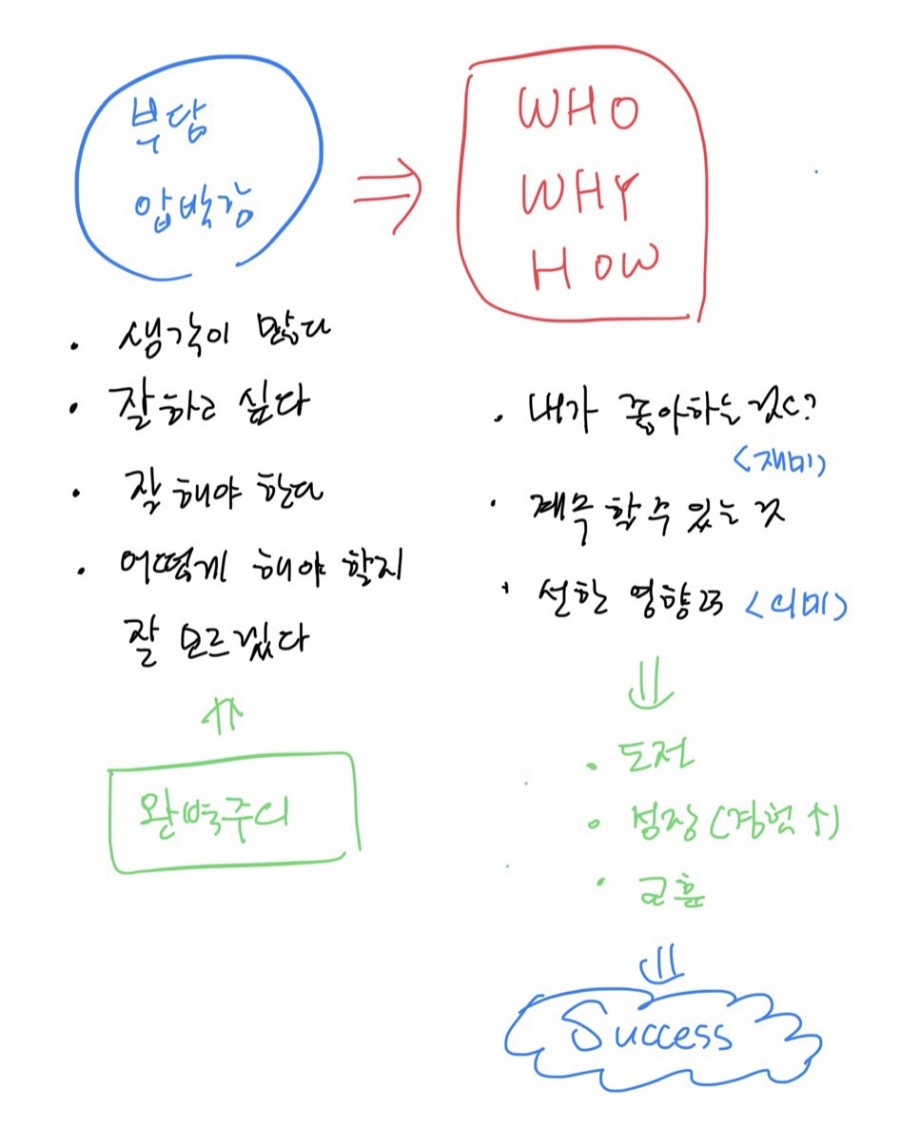 부담
압박감
⇒
WHO
WHY
HOW
· 생각이 많다
· 잘하고 싶다
· 잘 해야 한다
· 어떻게 해야 할지
잘 모르겠다
⇑
완벽주의
· 내가 좋아하는 것은?
<재미>
· 계속 할 수 있는 것
· 선한 영향력 <의미>
⇓
· 도전
· 성장 (경험 ↑)
· 교훈
⇓
Success